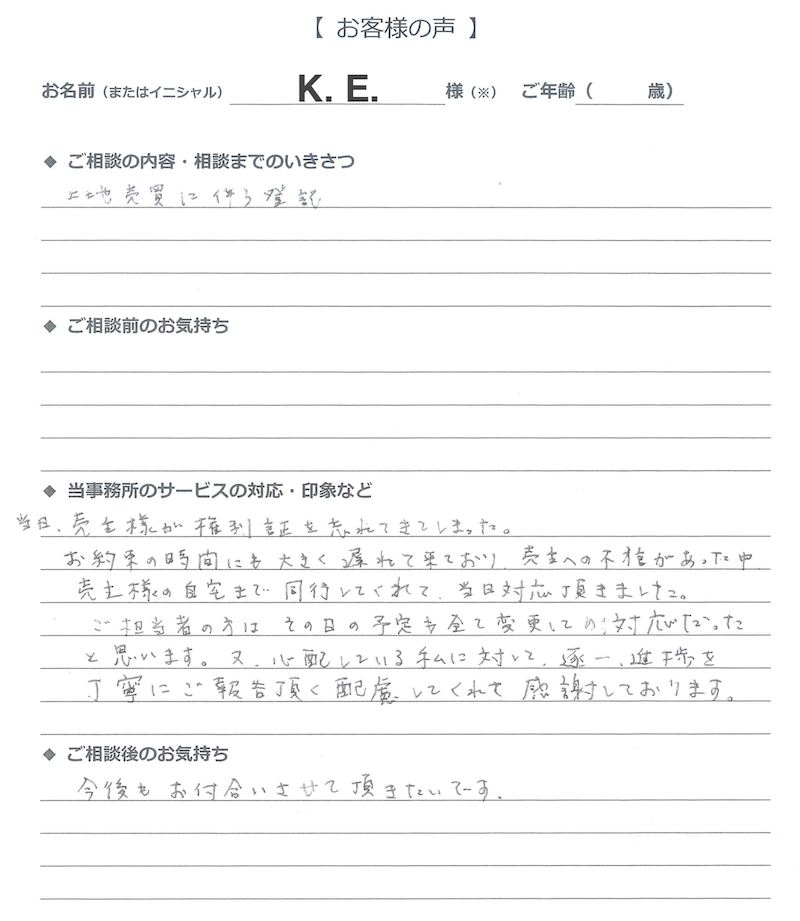 【 お客様の声 】
お名前（またはイニシャル） K. E. 様（※） ご年齢（ 歳）
◆ ご相談の内容・相談までのいきさつ
土地売買に伴う登記
◆ ご相談前のお気持ち
◆ 当事務所のサービスの対応・印象など
当日、売主様が権利証を忘れてきてしまった。
お約束の時間にも大きく遅れて来ており、売主への不信があった中
売主様の自宅まで同行してくれて、当日対応頂きました。
ご担当者の方はその日の予定も全て変更しての対応だった
と思います。又、心配している私に対して、逐一、進捗を
丁寧にご報告頂く配慮してくれて感謝しております。
◆ ご相談後のお気持ち
今後もお付合いさせて頂きたいです。